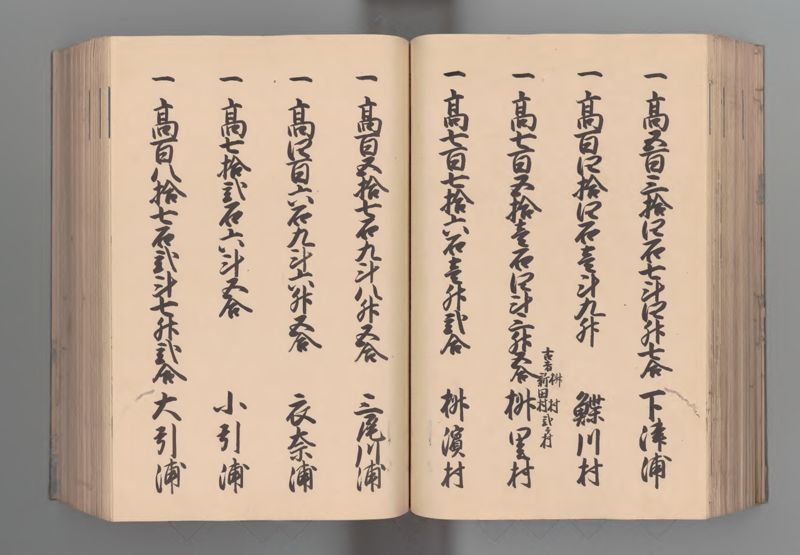 一 高五百三拾四石七斗四升七合 下津浦
一 高百四拾四石壱斗九升 鰈川村
一 高七百五拾壱石四斗六升五合 栁里村
古者 栁村
新田村 弐ケ村
一 高七百七拾六石壱升弐合 栁濱村
一 高百五拾七石九斗八升五合 三尾川浦
一 高四百六石九斗六升五合 衣奈浦
一 高七拾弐石六斗五合 小引浦
一 高百八拾七石弐斗七升弐合 大引浦